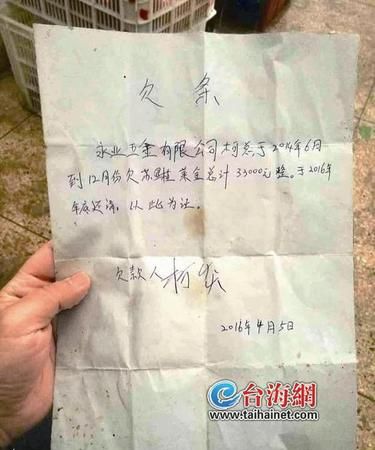 欠条
永业五金有限公司柯总于2014年6月
到12月份欠苏 菜金总计33000元整。于2016年
年底还清，以此为证。
欠款人 柯
2016年4月5日
台海網
www.taihainet.com